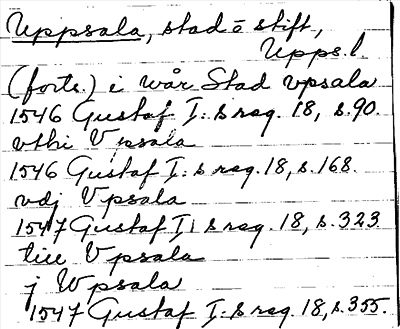 Uppsala, stad o stift,
Upps.l.
(forts.) i wår Stad vpsala
1546 Gustaf I:s reg. 18, s.90.
vthi Vpsala
1546 Gustaf I:s reg. 18, s.168.
vdj Vpsala
1547 Gustaf I:s reg. 18, s.323.
till Vpsala
j Wpsala
1547 Gustaf I:s reg. 18, s.355.